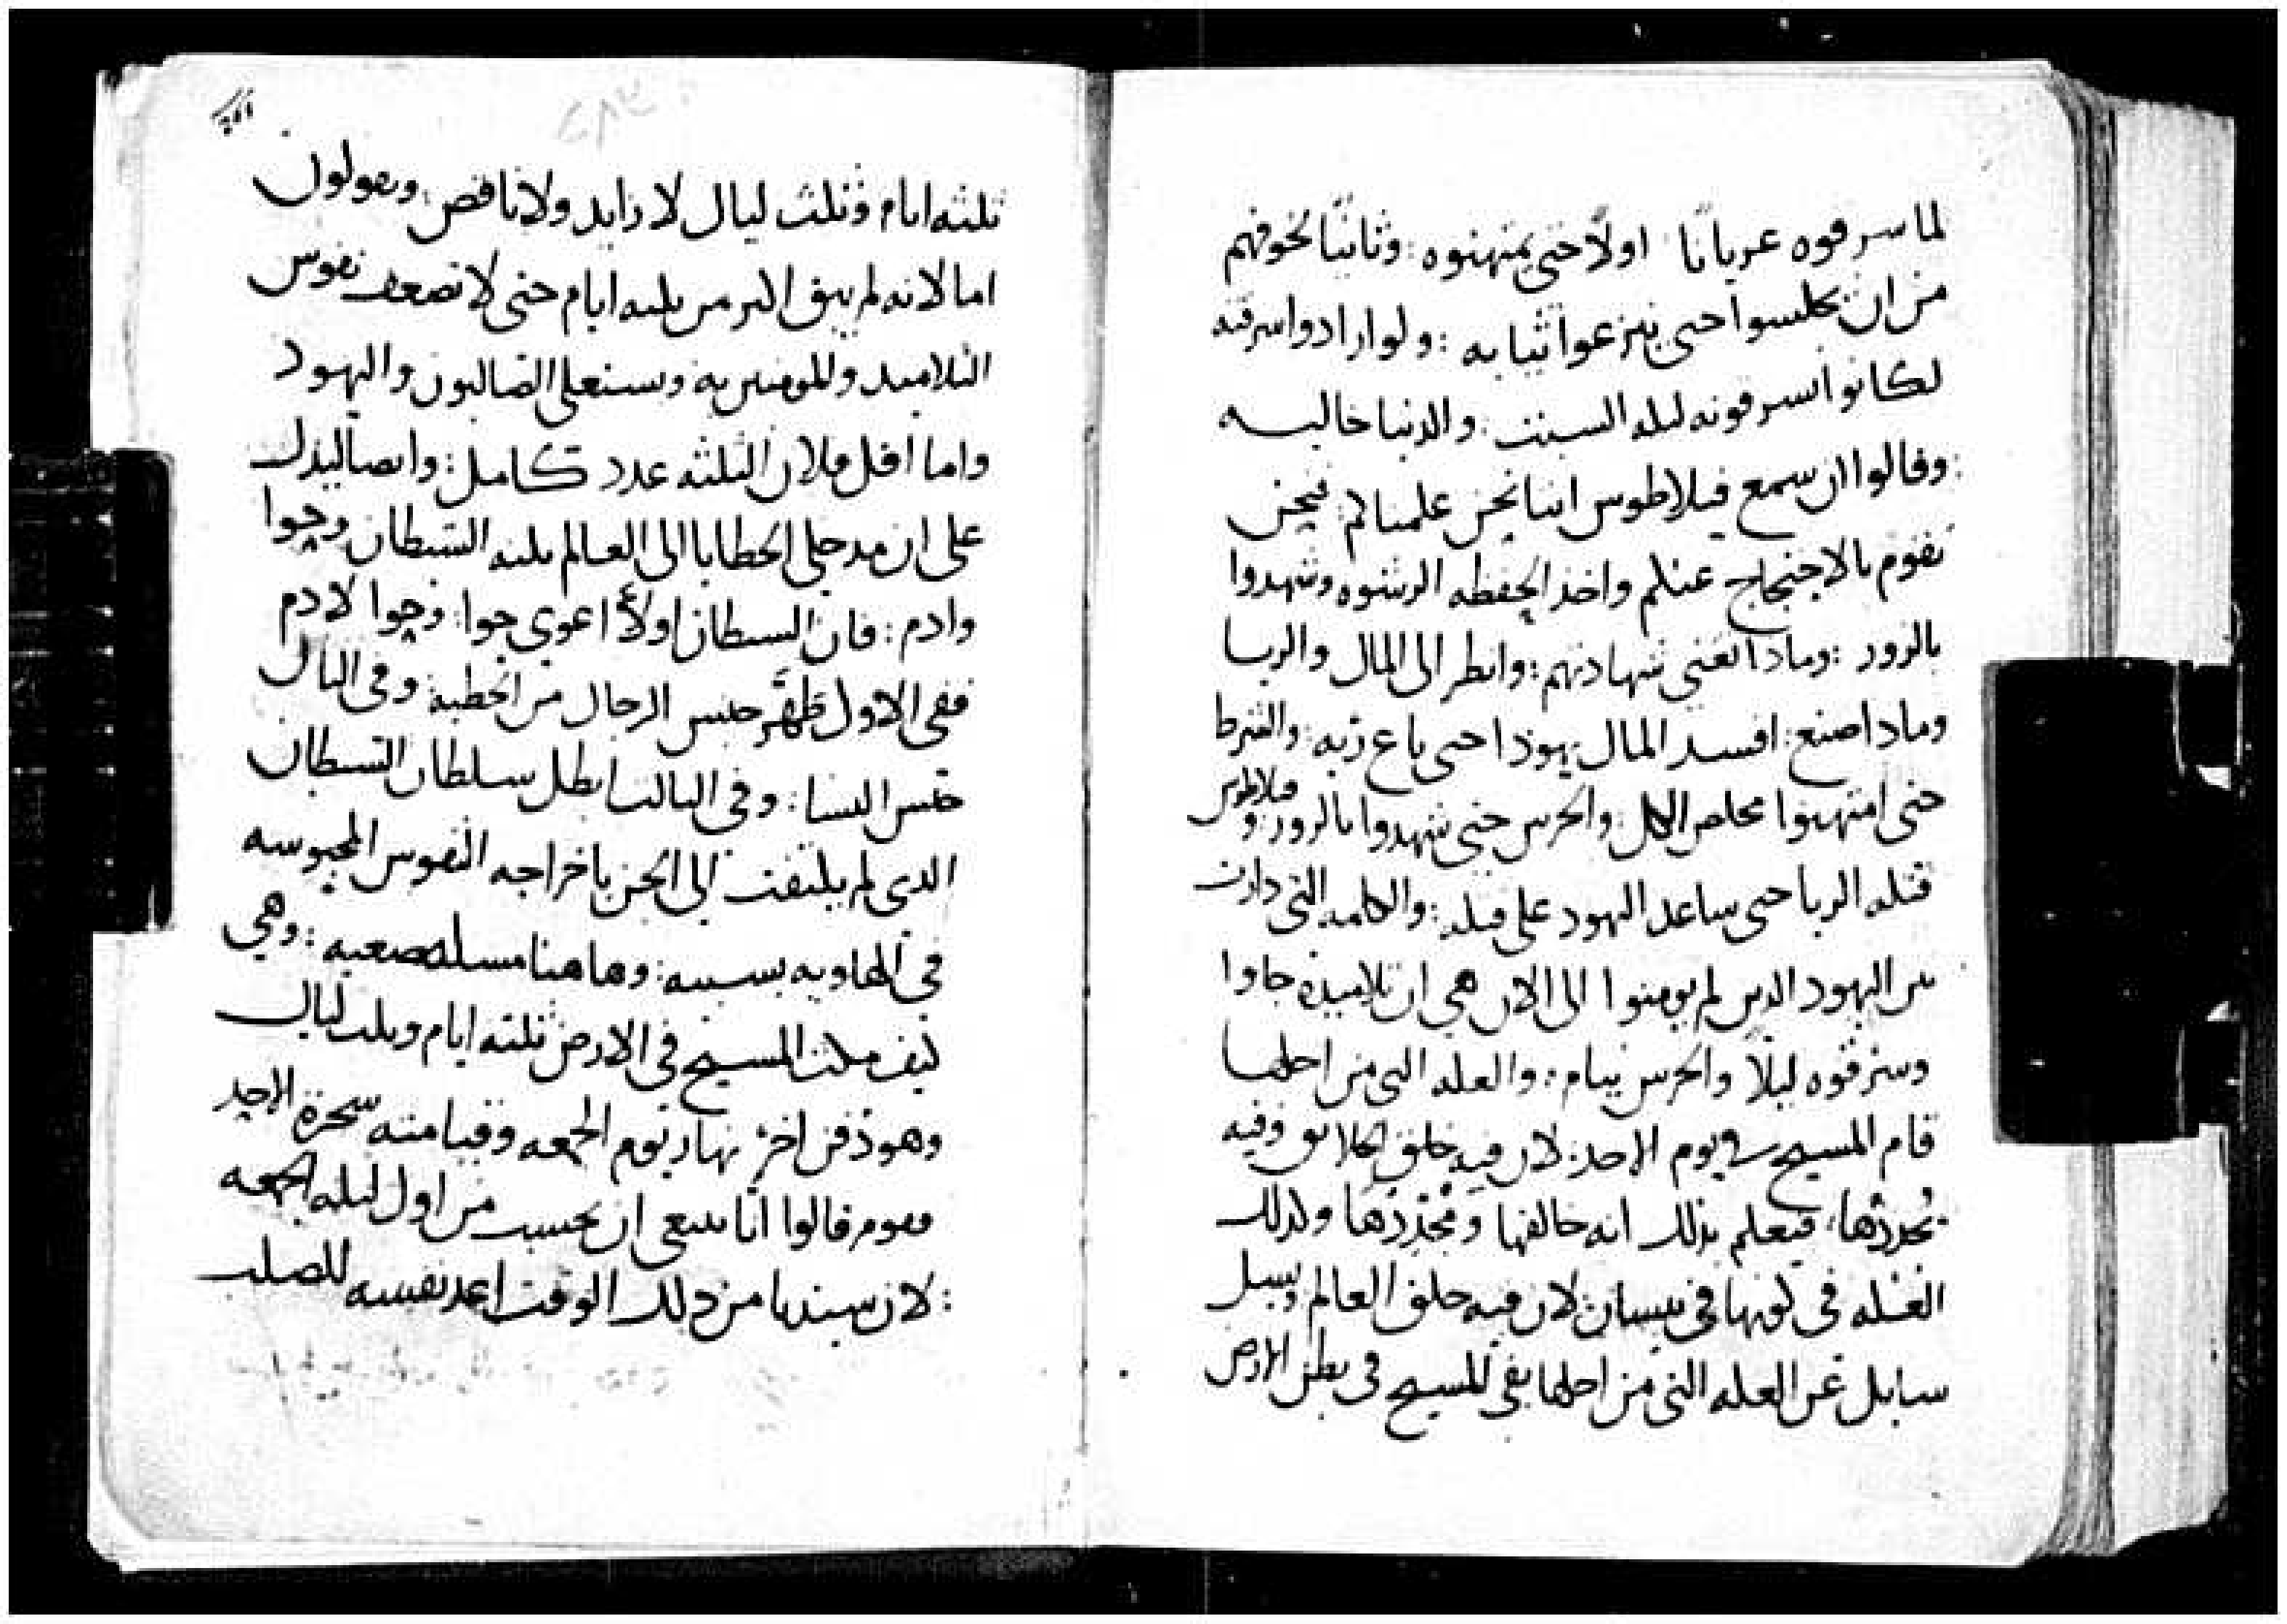 لما سرقوه عريانا اولا حتى يمتهنوه : وثانيا لخوفهم
من ان يجلسوا حتى ينزعوا ثيابه : ولو ارادوا سرقته
لكانوا يسرقونه ليله السبت : والدنيا خاليه
: وقالوا ان سمع فيلاطوس اننا نحن علمناكم : فنحن
نقوم بالاحتجاج عنكم واخذ الحفظه الرشوه وشهدوا
بالزور : وماذا تغنى شهادتهم : وانظر الى المال والريا
وماذا صنع : افسد المال يهوذا حتى باع ربه : والشرط
حتى امتهنوا مخلص الكل : والحرس حتى شهدوا بالزور : وفيلاطوس
قتله الريا حتى ساعد اليهود على قتله : والكلمه التى دارت
بين اليهود الدين لم يومنوا الى الان هى ان تلاميذه جاوا
وسرقوه ليلا والحرس نيام : والعله التى من اجلها
قام المسيح فى يوم الاحد : لان فيه خلق الخلايق وفيه
تجددها ، فيعلم بذلك انه خالقها ومجددها ولذلك
العله فى كونها فى نيسان : لان فيه خلق العالم ويسل
سايل عن العله التى من اجلها بقى المسيح فى بطن الارض
ثلثه ايام وثلث ليال لا زايد ولا ناقص : ويقولون
اما لانه لم يبق اكثر من ثلثه ايام حتى لا تضعف نفوس
التلاميد والمومنين به ويستعلى الصالبون واليهود
واما اقل فلان الثلثه عدد كامل : وايضا ليدل
على ان مدخلى الخطايا الى العالم ثلثه الشيطان وحوا
وادم : فان الشيطان اولا اغوى حوا : وحوا لادم
ففى الاول طهر جنس الرجال من الخطيه وفى الثانى
جنس النسا : وفى الثالث ابطل سلطان الشيطان
الدى لم يلتفت الى الحق باخراجه النفوس المحبوسه
فى الهاويه بسببه : وهاهنا مسله صعبه : وهى
كيف مكث المسيح فى الارض ثلثه ايام وثلث ليال
وهو دفن اخر نهار يوم الجمعه وقيامته سحرة الاحد
فقوم قالوا انا ينبغى ان نحسب من اول ليله الجمعه
: لان سيدنا من ذلك الوقت اعد نفسه للصلب